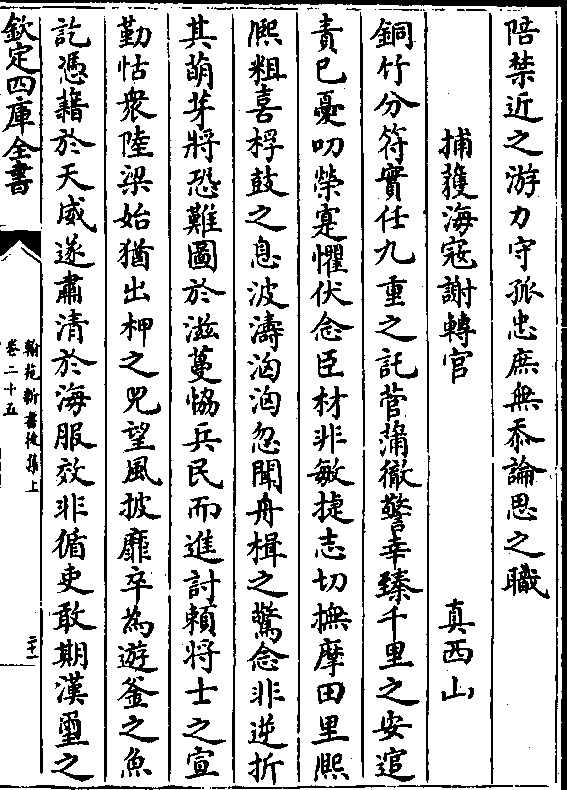 陪禁近之游力守孤忠庶無忝論思之職
捕獲海寇謝轉官 真西山
銅竹分符實任九重之託菅蒲徹警幸臻千里之安逭
責已憂叨榮寔懼伏念臣材非敏捷志切撫摩田里熙
熙粗喜桴鼓之息波濤洶洶忽聞舟楫之驚念非逆折
其萌芽將恐難圖於滋蔓恊兵民而進討頼將士之宣
勤怙衆陸梁始猶出柙之兕望風披靡卒為遊釜之魚
訖憑藉於天威遂肅清於海服效非循吏敢期漢璽之
欽定四庫全書
翰苑新書後集上
卷二十五
二十一